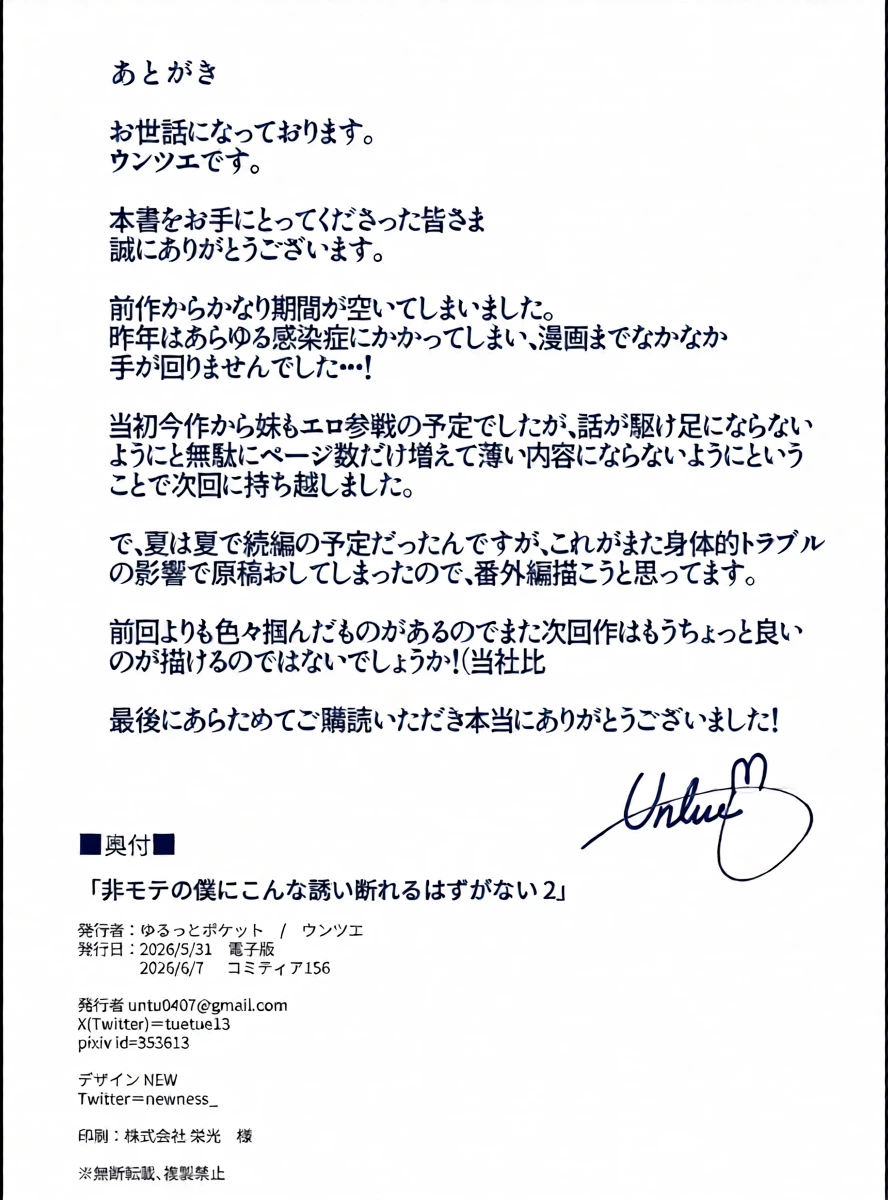 あとがき
お世話になっております。
ウンツエです。
本書をお手にとってくださった皆さま
誠にありがとうございます。
前作からかなり期間が空いてしまいました。
昨年はあらゆる感染症にかかってしまい、漫画までなかなか
手が回りませんでした…!
当初今作から妹もエロ参戦の予定でしたが、話が駆け足にならない
ようにと無駄にページ数だけ増えて薄い内容にならないようにという
ことで次回に持ち越しました。
で、夏は夏で続編の予定だったんですが、これがまた身体的トラブル
の影響で原稿おしてしまったので、番外編描こうと思ってます。
前回よりも色々掴んだものがあるのでまた次回作はもうちょっと良い
のが描けるのではないでしょうか!(当社比
最後にあらためてご購読いただき本当にありがとうございました!
Untue
■奥付■
「非モテの僕にこんな誘い断れるはずがない2」
発行者:ゆるっとポケット / ウンツエ
発行日:2026/5/31 電子版
2026/6/7 コミティア156
発行者 untu0407@gmail.com
X(Twitter)=tuetue13
pixiv id=353613
デザイン NEW
Twitter=newness_
印刷:株式会社 栄光 様
※無断転載、複製禁止